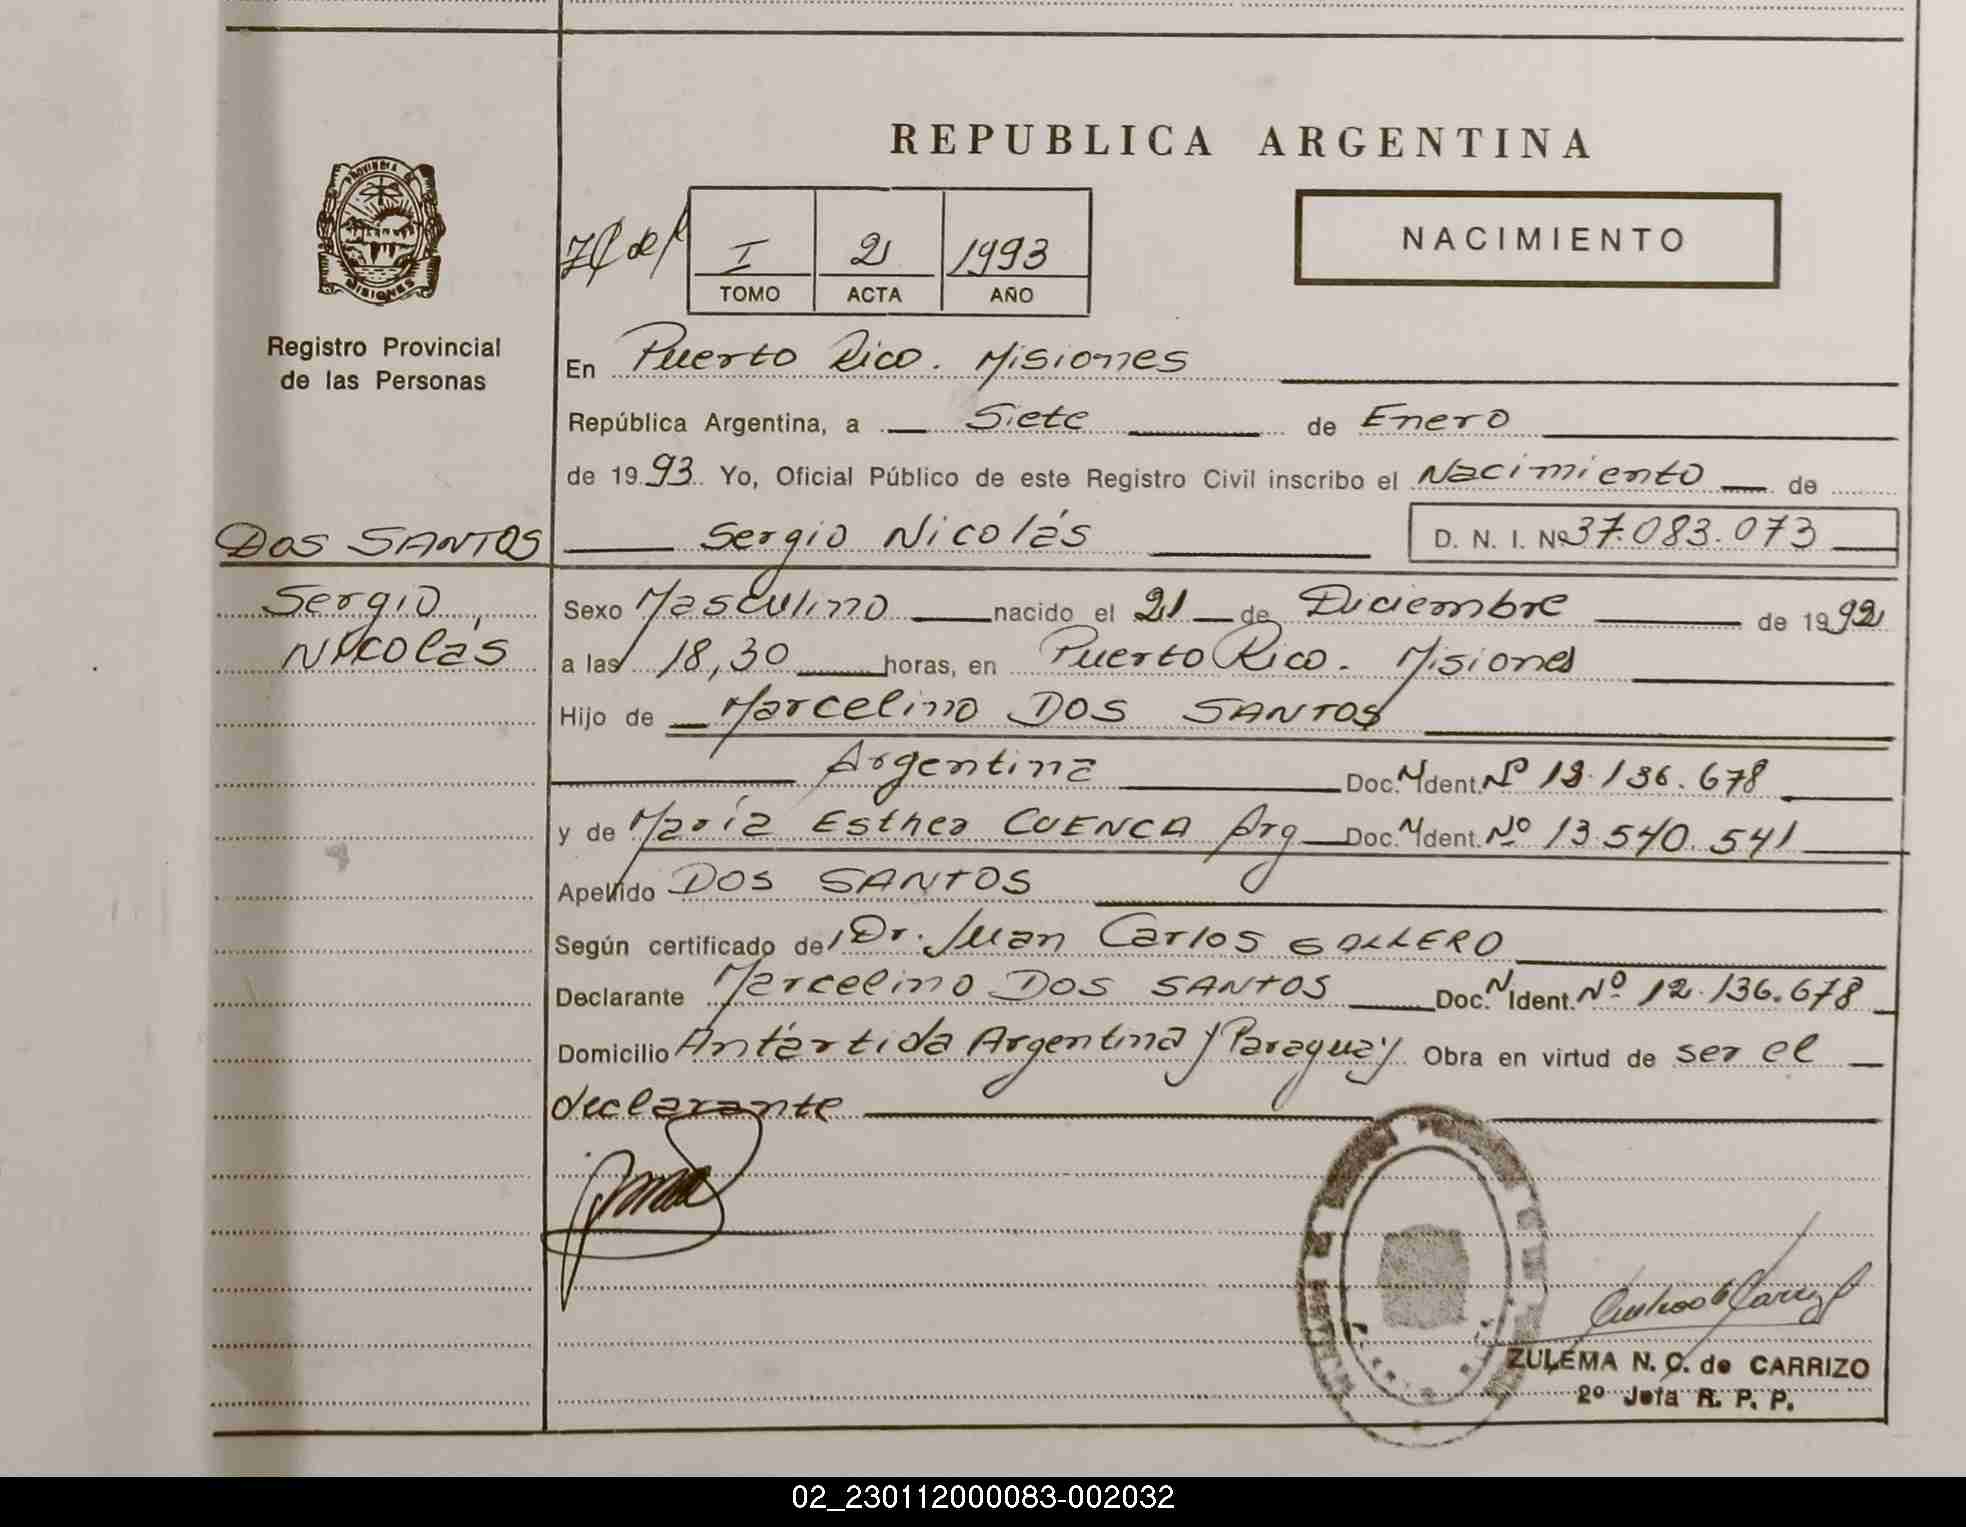 REPUBLICA ARGENTINA
PROVINCIA DE
MISIONES
Registro Provincial
de las Personas
I 2 1993
TOMO ACTA AÑO
NACIMIENTO
En Puerto Rico. Misiones
República Argentina, a Siete de Enero
de 1993. Yo, Oficial Público de este Registro Civil inscribo el Nacimiento de
DOS SANTOS
Sergio Nicolás D. N. I. Nº 37.083.073
Sergio
Nicolás
Sexo Masculino nacido el 21 de Diciembre de 1992
a las 18,30 horas, en Puerto Rico. Misiones
Hijo de Marcelino DOS SANTOS
Argentina Doc. Ident. Nº 12.136.678
y de María Esther CUENCA Arg Doc. Ident. Nº 13.540.541
Apellido DOS SANTOS
Según certificado del Dr. Juan Carlos GALLERO
Declarante Marcelino DOS SANTOS Doc. Ident. Nº 12.136.678
Domicilio Antártida Argentina y Paraguay Obra en virtud de ser el
declarante
ZULEMA N. C. de CARRIZO
2º Jefa R. P. P.
02_230112000083-002032